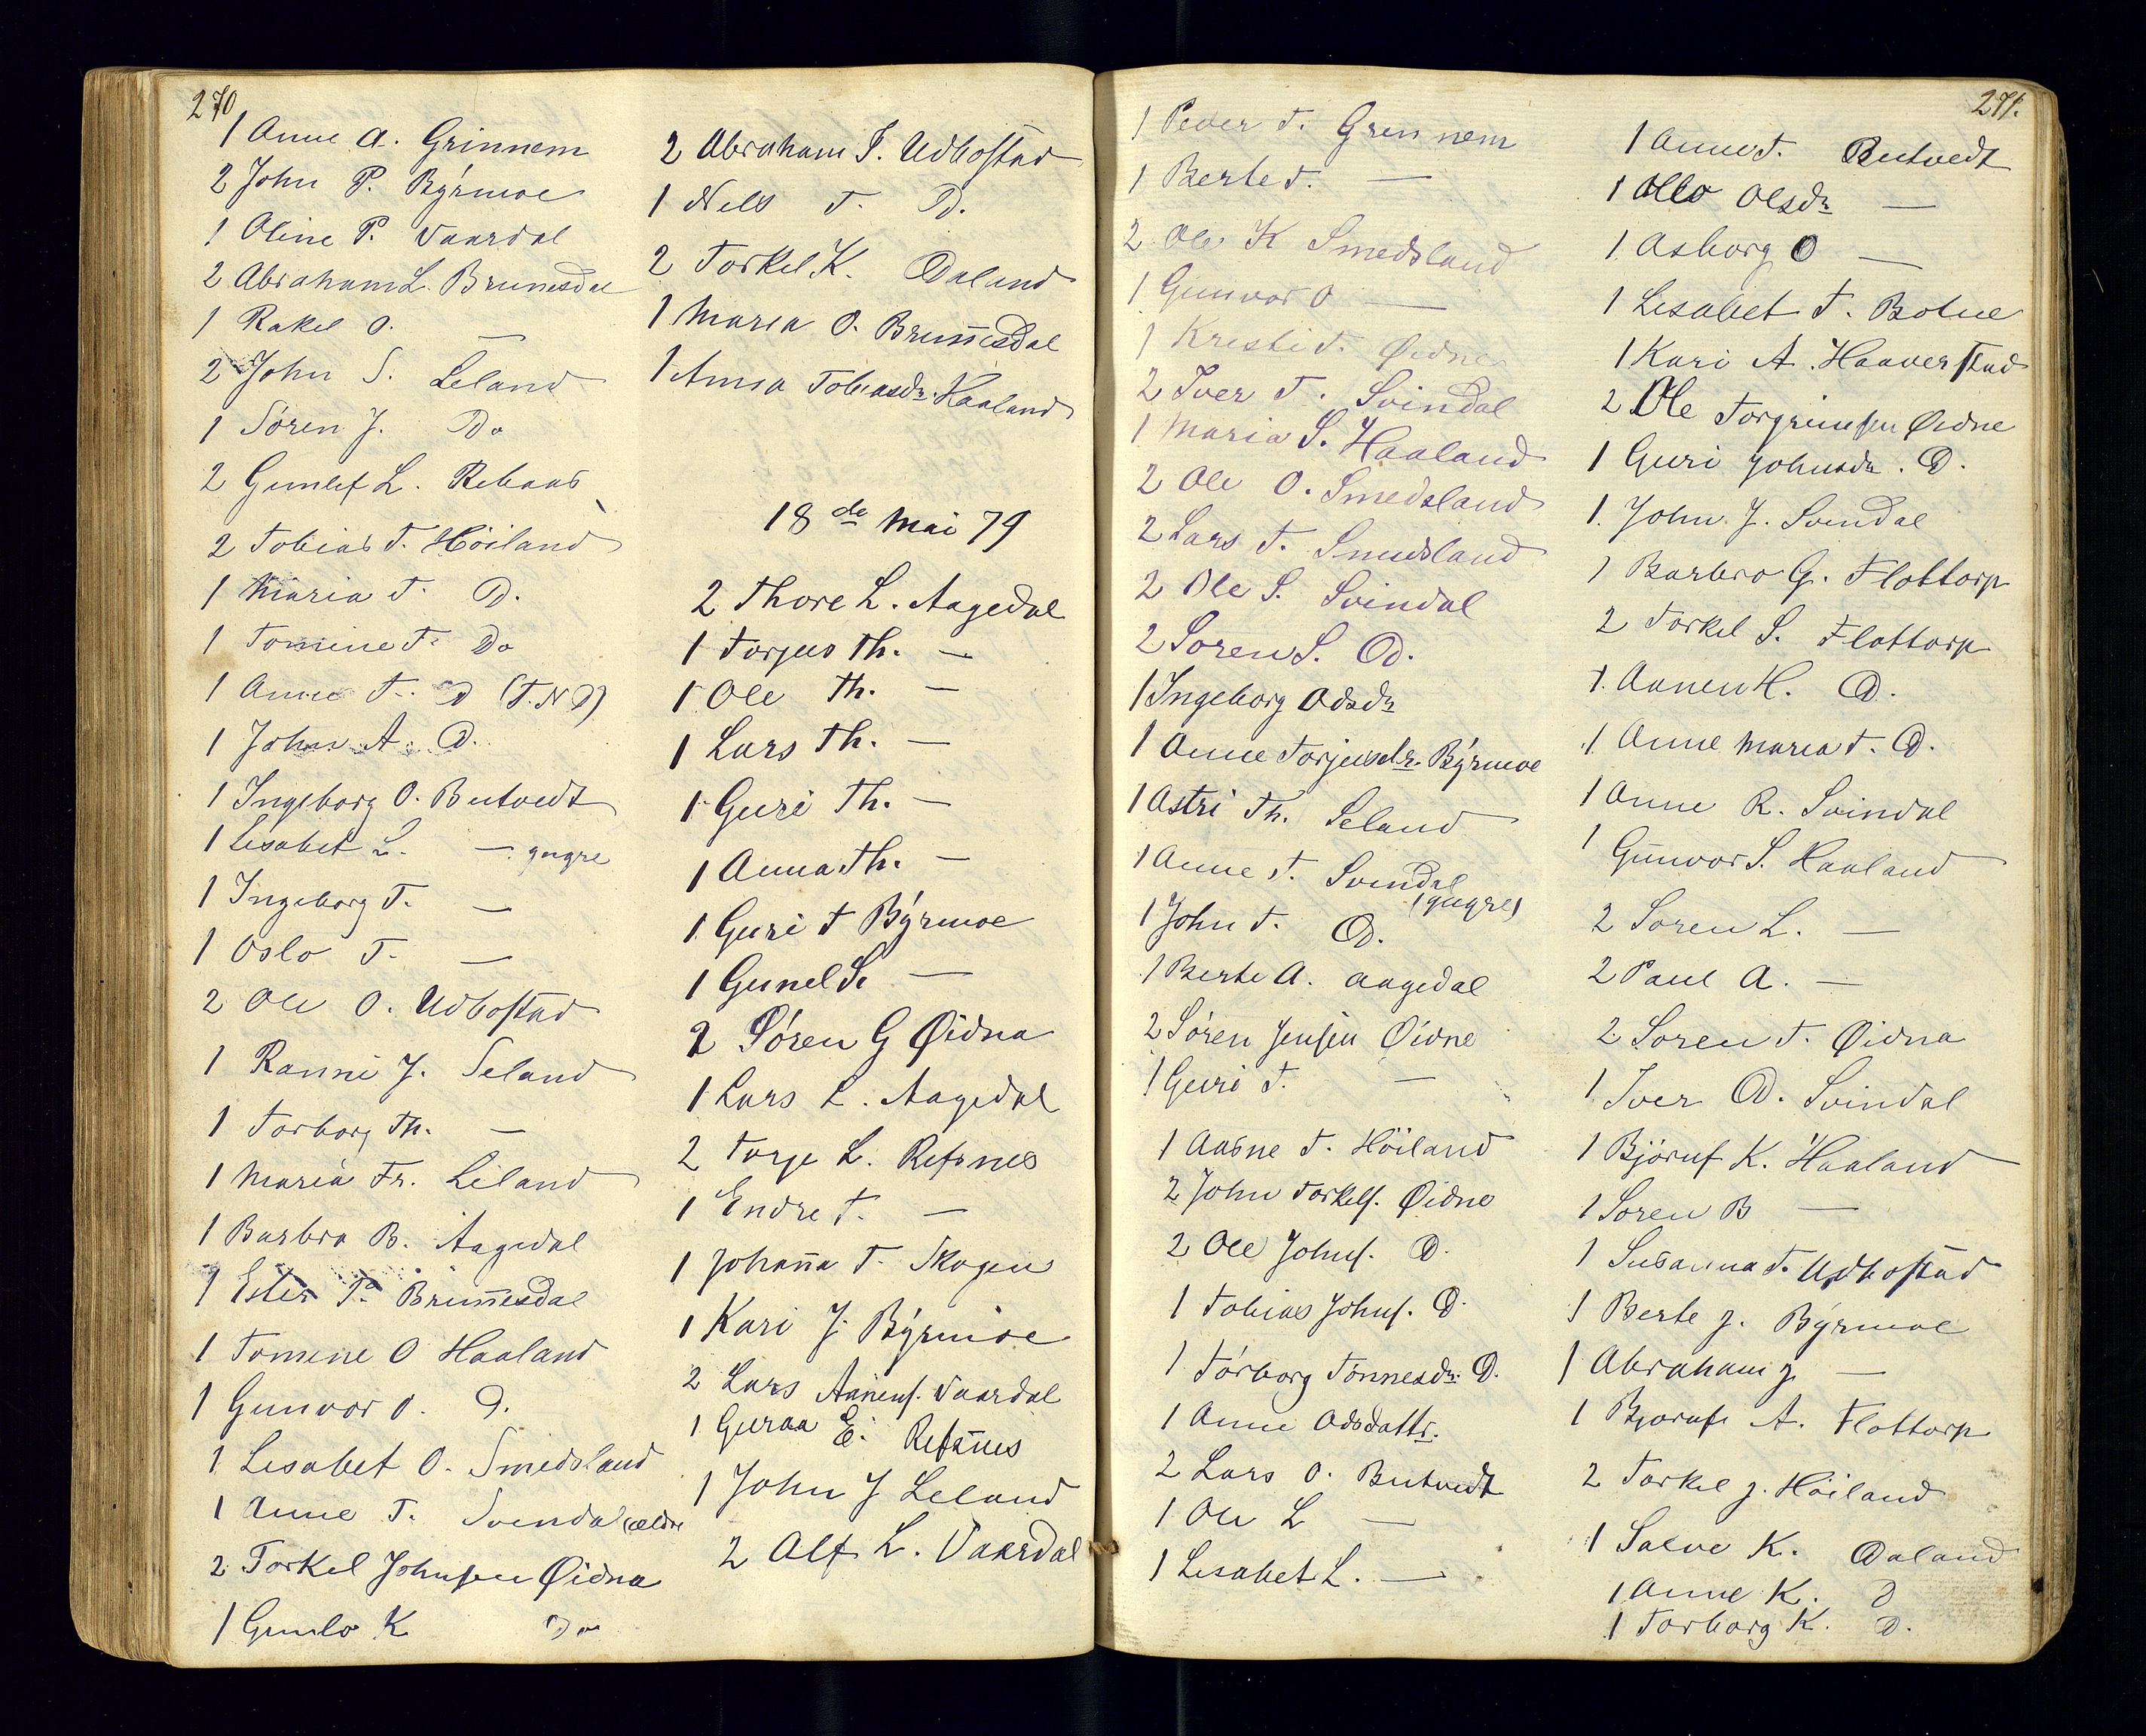 270
1 Anne A. Grinnem
2 John P. Býrmoe
1 Oline P. Vaardal
2 Abraham L. Brunesdal
1 Rakel O. —
2 John S. Leland
1 Sören J. Do
2 Gunlef L. Rebaas
2 Tobias T. Höiland
1 Maria T. D.
1 Tomine T. Do
1 Anne T. D (T.N.D)
1 John A. D.
1 Ingeborg O. Butvedt
1 Lisabet L. — yngre
1 Ingeborg T. —
1 Oslo T. —
2 Ole O. Udbostad
1 Ranni J. Seland
1 Torborg Th. —
1 Maria Fr. Leland
1 Barbro B. Aagedal
1 Ester P. Brunesdal
1 Tomine O Haaland
1 Gunvor O. D.
1 Lisabet O. Smedsland
1 Anne T. Svendal (ældre
2 Torkel Johnsen Øidna
1 Gunlo K Do
2 Abraham T. Udbostad
1 Nels T. D.
2 Torkel K. Daland
1 Maria O. Brunesdal
1 Anna Tobiasdr. Haaland
18de Mai 79
2 Thore L. Aagedal
1 Torjus Th. —
1 Ole Th. —
1 Lars Th. —
1 Guri Th. —
1 Anna Th. —
1 Guri T Býrmoe
1 Gunel S. —
2 Sören G Øidna
1 Lars L. Aagedal
2 Torje L. Refsnes
1 Endre T. —
1 Johanna T. Skogen
1 Kari J. Býrmoe
2 Lars Aanens. Vaardal
1 Guraa E. Refsnes
1 John J Leland
2 Alf L. Vaardal
271.
1 Peder T. Grennem
1 Berte T. —
2 Ole K Smedsland
1 Gunvor O —
1 Kresti T. Øidne
2 Iver T. Svindal
1 Maria S. Haaland
2 Ole O. Smedsland
2 Lars T. Smedsland
2 Ole S. Svindal
2 Soren S. D.
1 Ingeborg Odsdr
1 Anne Torjusdr. Býrmoe
1 Astri Th. Seland
1 Anne T. Svendal
(yngre)
1 John T. D.
1 Berte A. Aagedal
2 Sören Jensen Øidne
1 Guri T. —
1 Aasne T. Höiland
2 John Torkels. Øidne
2 Ole Johns. D.
1 Tobias Johns. D.
1 Törborg Tönnesdr. D.
1 Anne Odsdattr.
2 Lars O. Butvedt
1 Ole L —
1 Lisabet L. —
1 Anne T. Butvedt
1 Ollo Olsdr —
1 Asborg O —
1 Lisabet T. Botne
1 Kari A. Haaverstad
2 Ole Torgrimsen Øidne
1 Guri Johnsdr. D.
1 John J. Svendal
1 Barbro G. Flottorp
2 Torkel S. Flottorp
1 Aanen H. D.
1 Anne Maria T. D.
1 Anne R. Svindal
1 Gunvor S. Haaland
2 Soren L. —
2 Paul A. —
2 Soren T. Øidna
1 Iver D. Svindal
1 Björuf K. Haaland
1 Soren B —
1 Susanna T. Udbostad
1 Berte J. Býrmoe
1 Abraham J. —
1 Bjoruf A. Flottorp
2 Torkel J. Höiland
1 Salve K. Daland
1 Anne K. D
1 Torborg K. D.